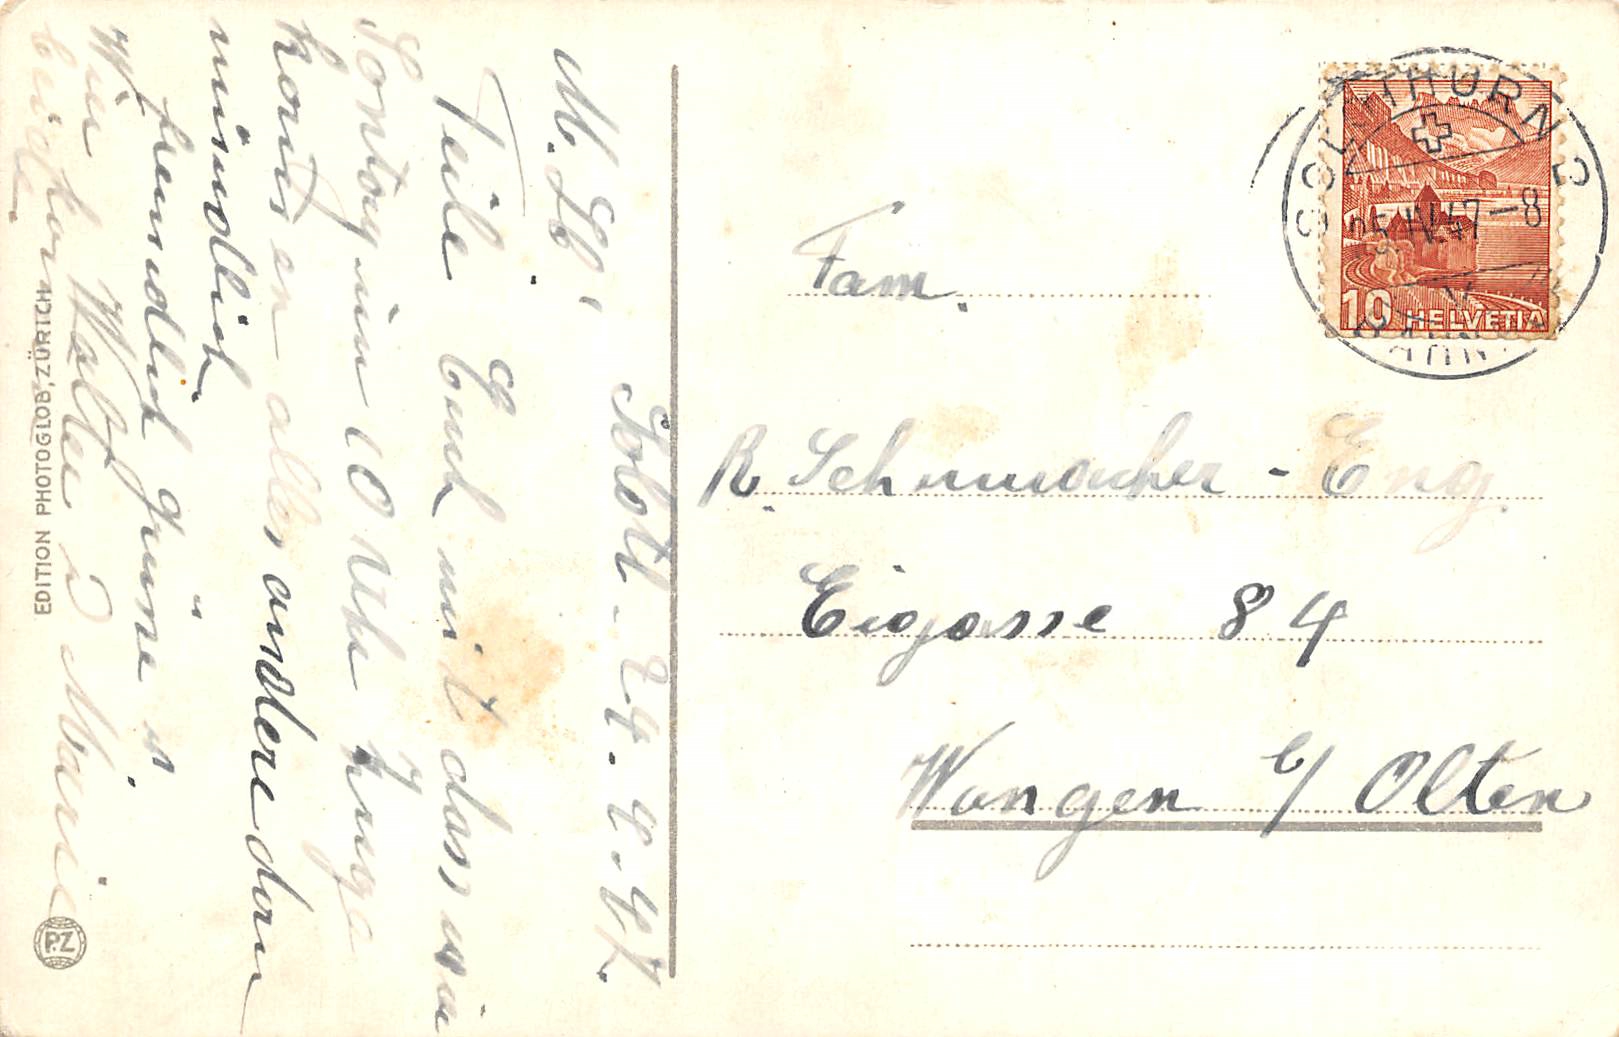 Soloth. 24.4.47.
M. Lb!
Teile Euch mit dass wir
Sontag um 10 Uhr
komt en alles andere dann
mündlich
freundlich grüsse
Wir Walter u Marie
beide
EDITION PHOTOGLOB, ZÜRICH
P.Z
SOLOTHURN 2
25.IV.47-8
10 HELVETIA
Fam.
R. Schumacher - Eng.
Eigasse 84
Wangen b/ Olten